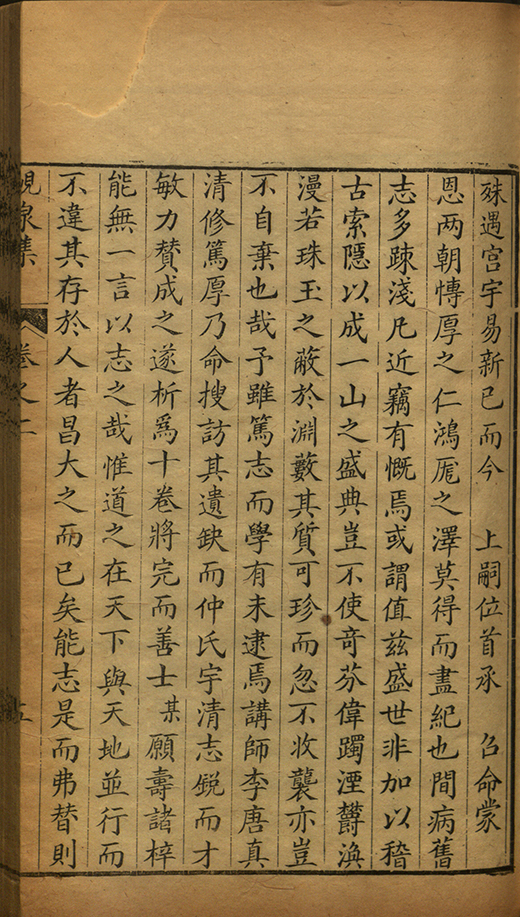 殊遇宫宇易新已而今　上嗣位首承　召命蒙
恩两朝慱厚之仁鴻厖之澤莫得而盡紀也間病舊
志多踈淺凡近竊有慨焉或謂值兹盛世非加以稽
古索隱以成一山之盛典豈不使竒芬偉躅湮欝渙
漫若珠玉之蔽於淵藪其質可珍而忽不收襲亦豈
不自棄也哉予雖篤志而學有未逮焉講師李唐真
清修篤厚乃命搜訪其遺缺而仲氏宇清志銳而才
敏力賛成之遂析爲十卷將完而善士某願壽諸梓
能無一言以志之哉惟道之在天下與天地並行而
不違其存於人者昌大之而已矣能志是而弗替則
峴泉集　卷之二　五